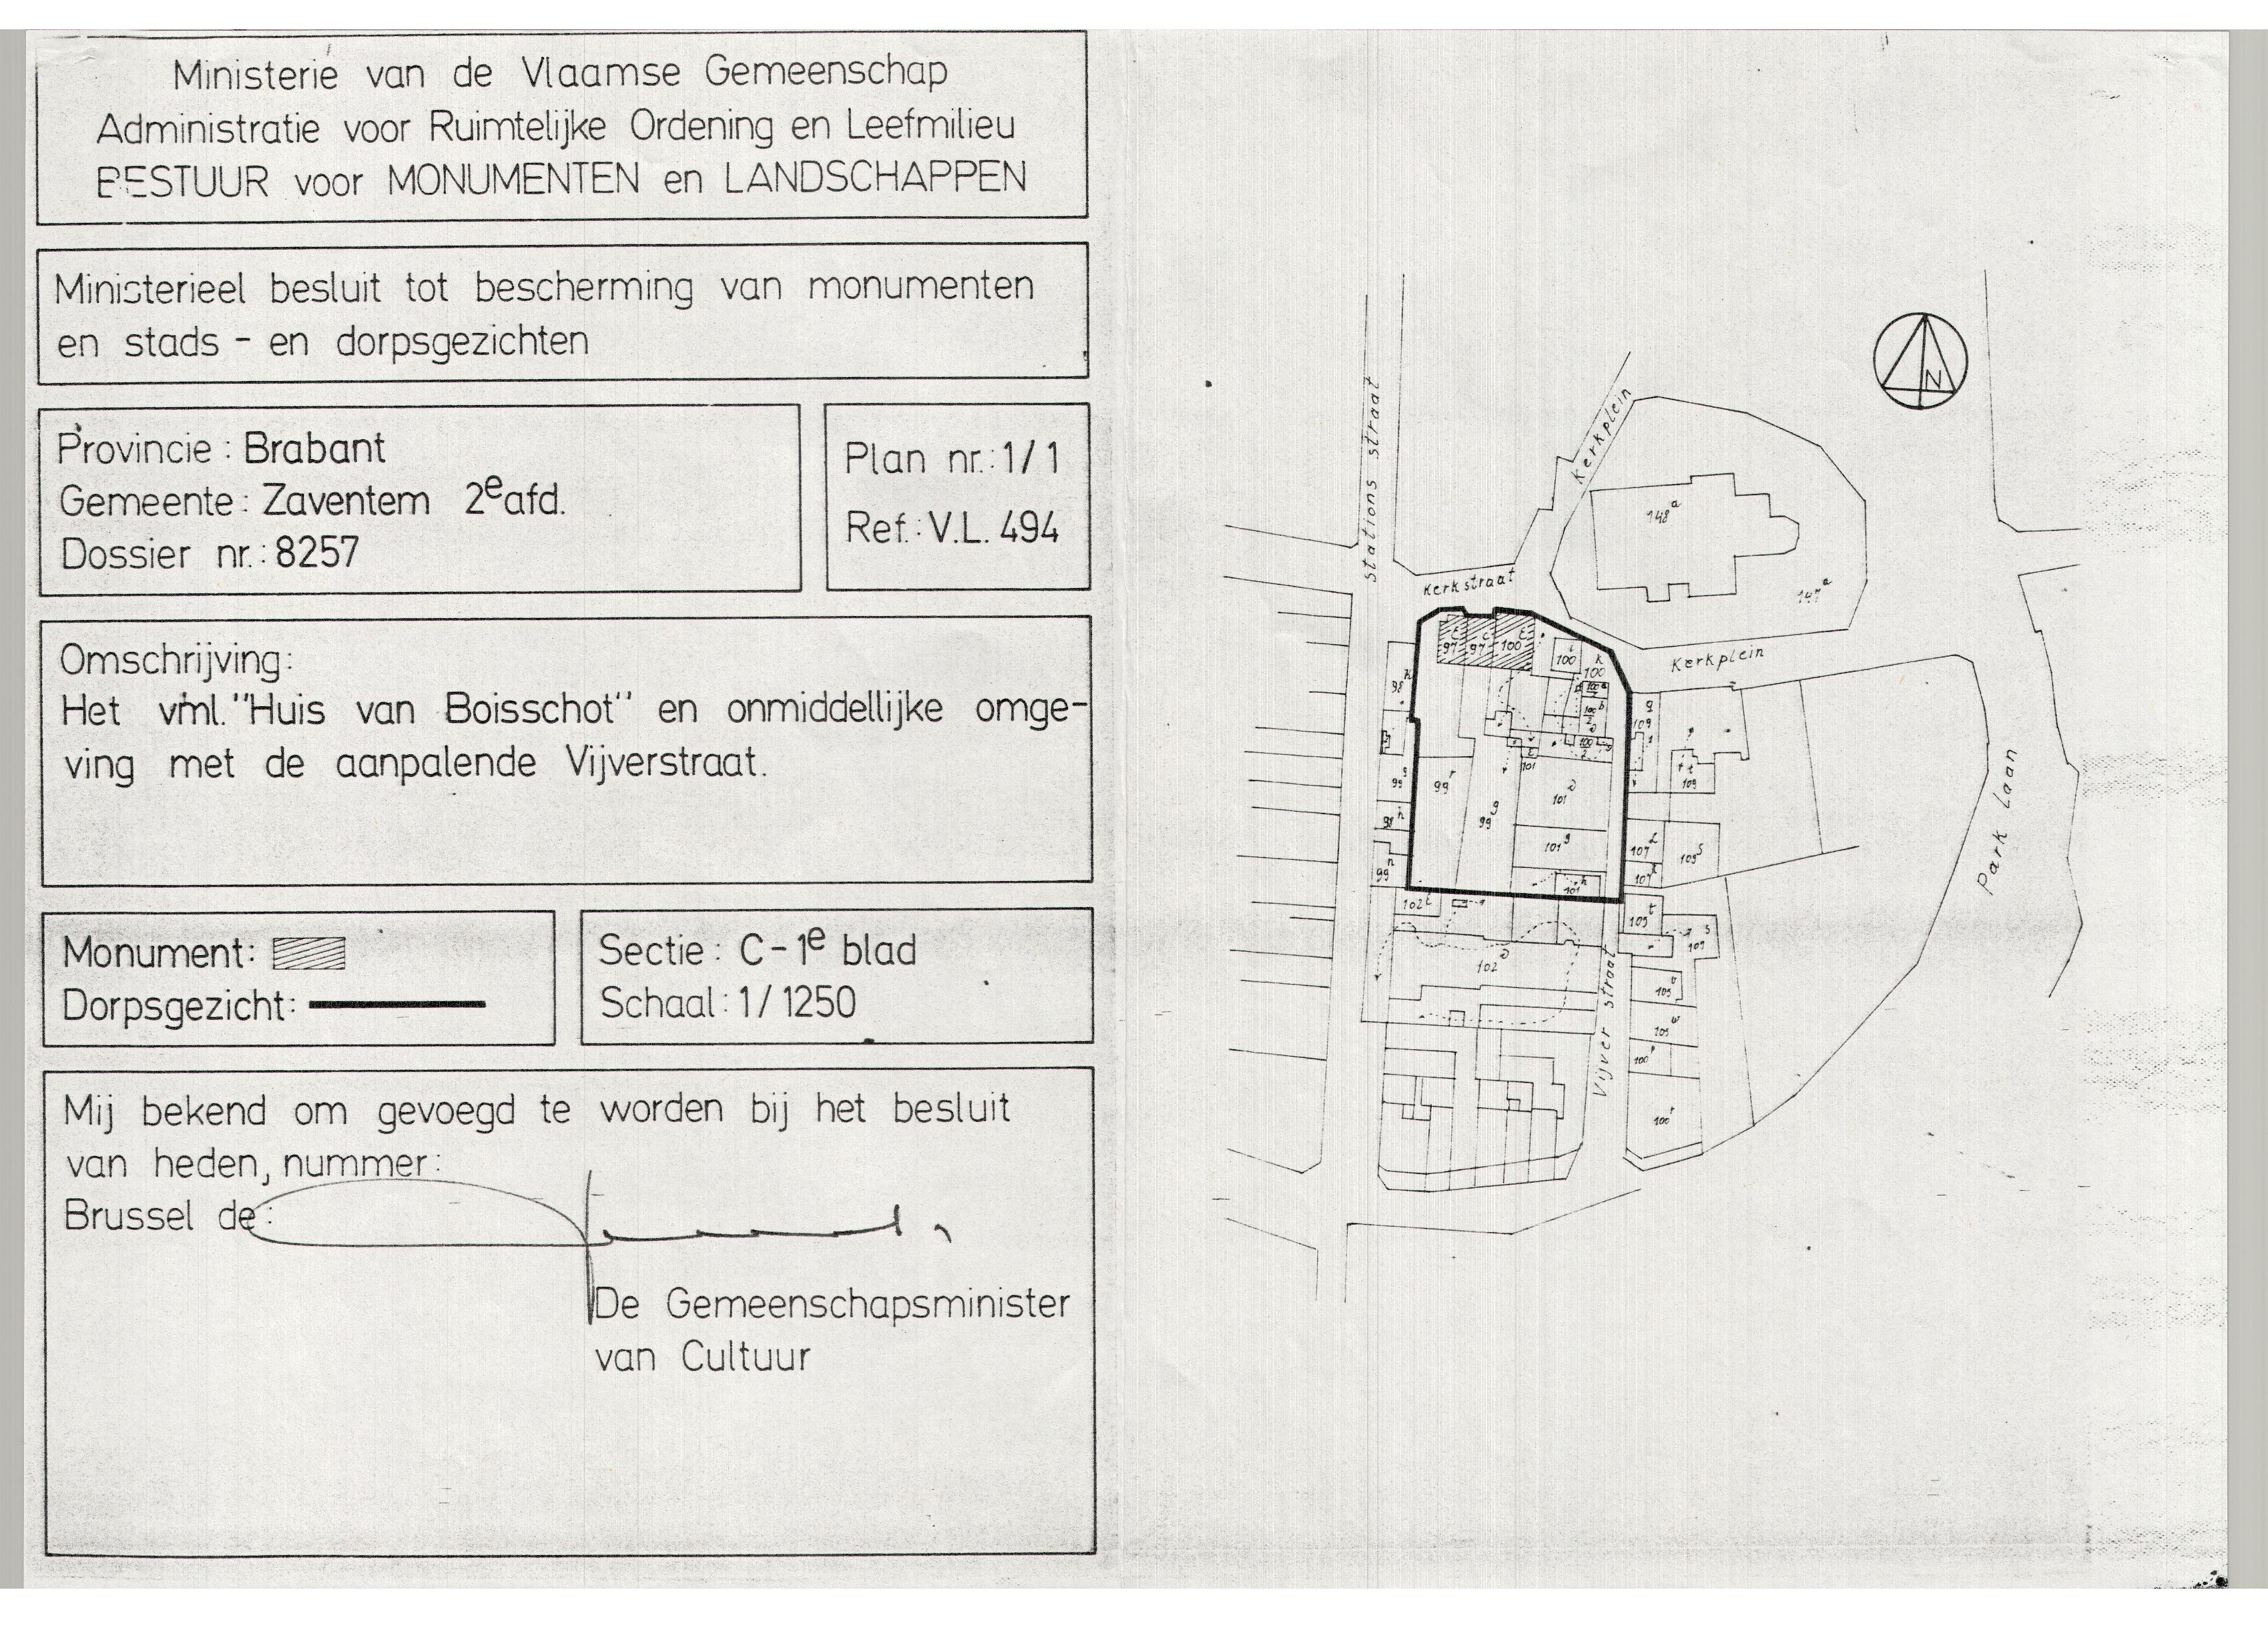 Ministerie van de Vlaamse Gemeenschap
Administratie voor Ruimtelijke Ordening en Leefmilieu
BESTUUR voor MONUMENTEN en LANDSCHAPPEN
Ministerieel besluit tot bescherming van monumenten
en stads - en dorpsgezichten
Provincie : Brabant
Gemeente : Zaventem 2e afd.
Dossier nr. : 8257
Plan nr. : 1/1
Ref. : V.L. 494
Omschrijving:
Het vml. "Huis van Boisschot" en onmiddellijke omge-
ving met de aanpalende Vijverstraat.
Monument:
Dorpsgezicht:
Sectie : C - 1e blad
Schaal : 1/1250
Mij bekend om gevoegd te worden bij het besluit
van heden, nummer :
Brussel de :
De Gemeenschapsminister
van Cultuur
N
stations straat
Kerkplein
148a
147a
Kerkstraat
Kerkplein
97 97 100
100
100
99r
99g
101
101g
101h
102
Park laan
Vijver straat